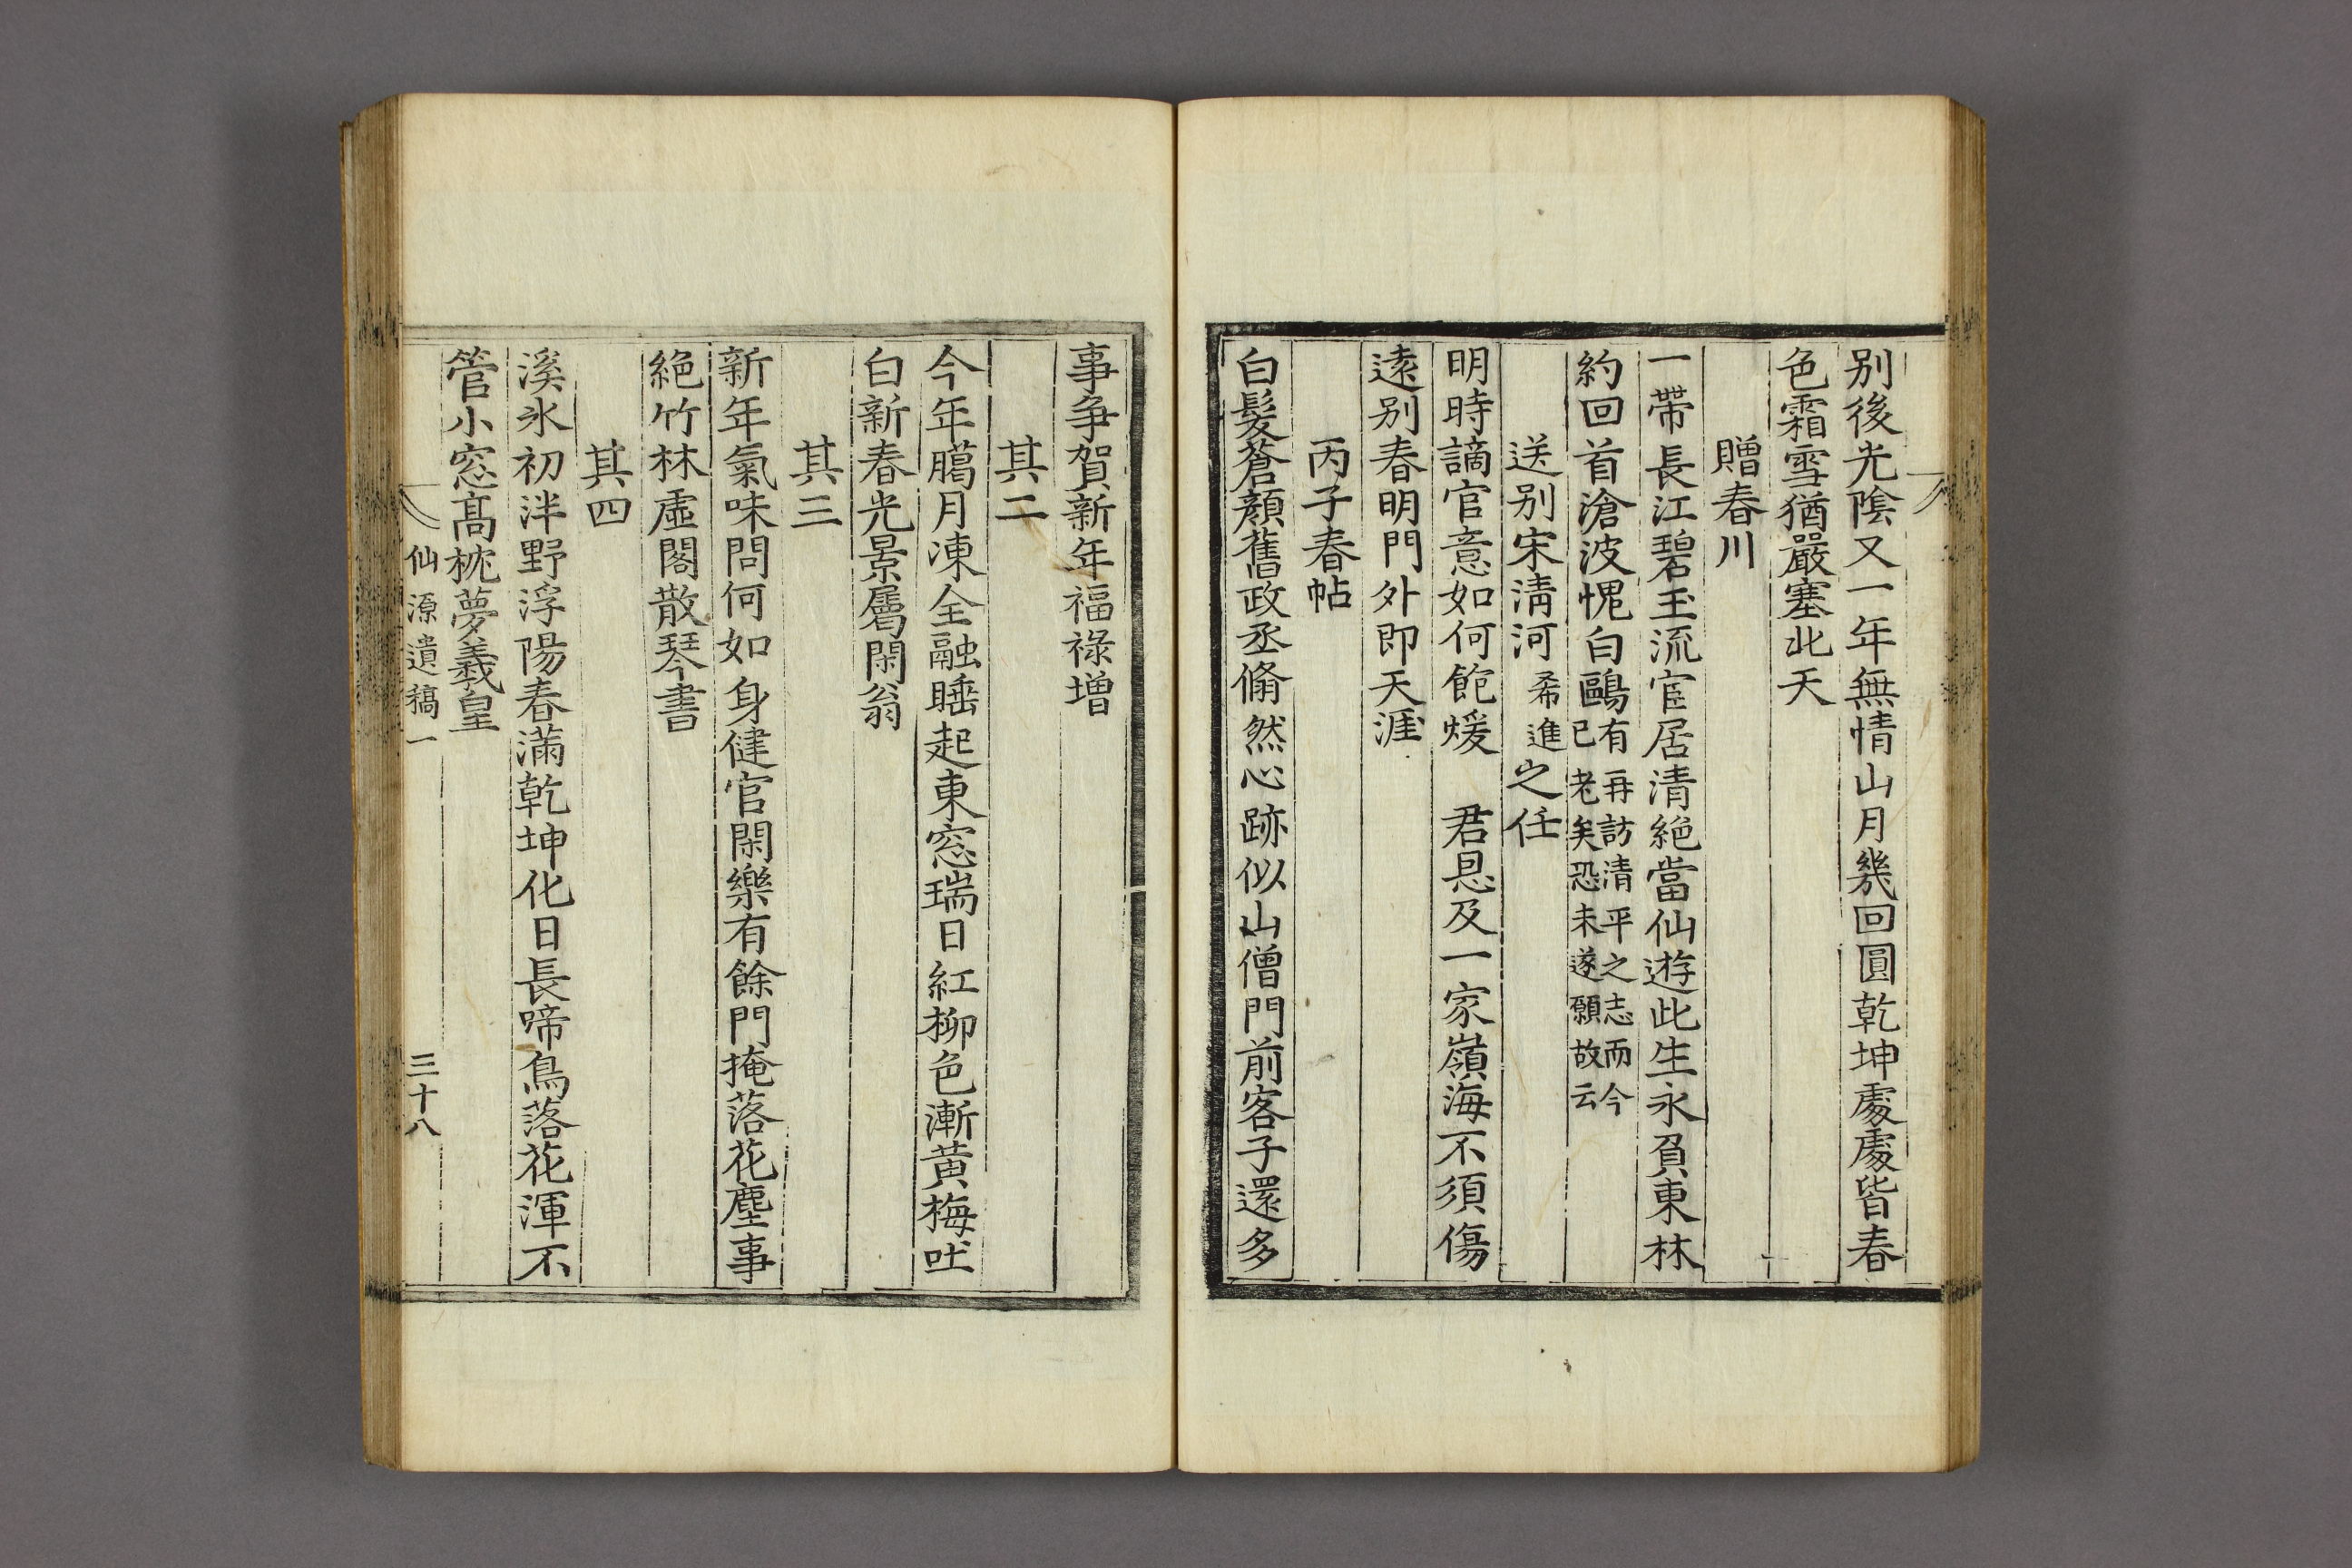 别後光陰又一年無情山月幾回圓乾坤處處皆春
色霜雪猶嚴塞北天
贈春川
一帶長江碧玉流宦居清絶當仙遊此生永負東林
約回首滄波愧白鷗有再訪清平之志而今
已老矣恐未遂願故云
送别宋淸河希進之任
明時謫官意如何飽煖 君恩及一家嶺海不須傷
遠别春明門外即天涯
丙子春帖
白髮蒼顔舊政丞翛然心跡似山僧門前客子還多
事爭賀新年福祿增
其二
今年臈月凍全融睡起東窓瑞日紅柳色漸黄梅吐
白新春光景屬閑翁
其三
新年氣味問何如身健官閑樂有餘門掩落花塵事
絶竹林虛閣散琴書
其四
溪氷初泮野浮陽春滿乾坤化日長啼鳥落花渾不
管小窓髙枕夢羲皇
仙源遺稿一
三十八